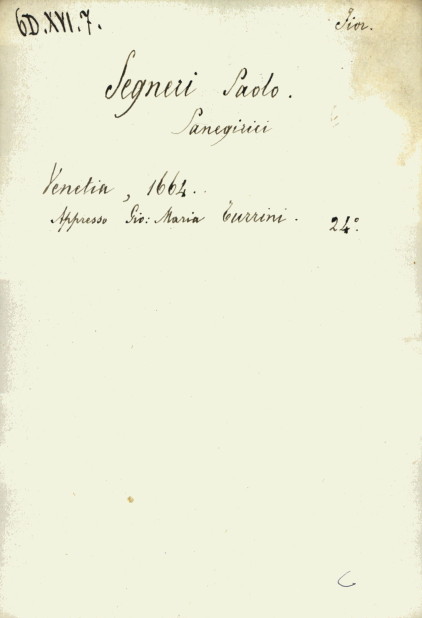 6D.XVI.7. Fior.
Segneri Paolo.
Panegirici
Venetia, 1664.
Appresso Gio: Maria Turrini. 24°.